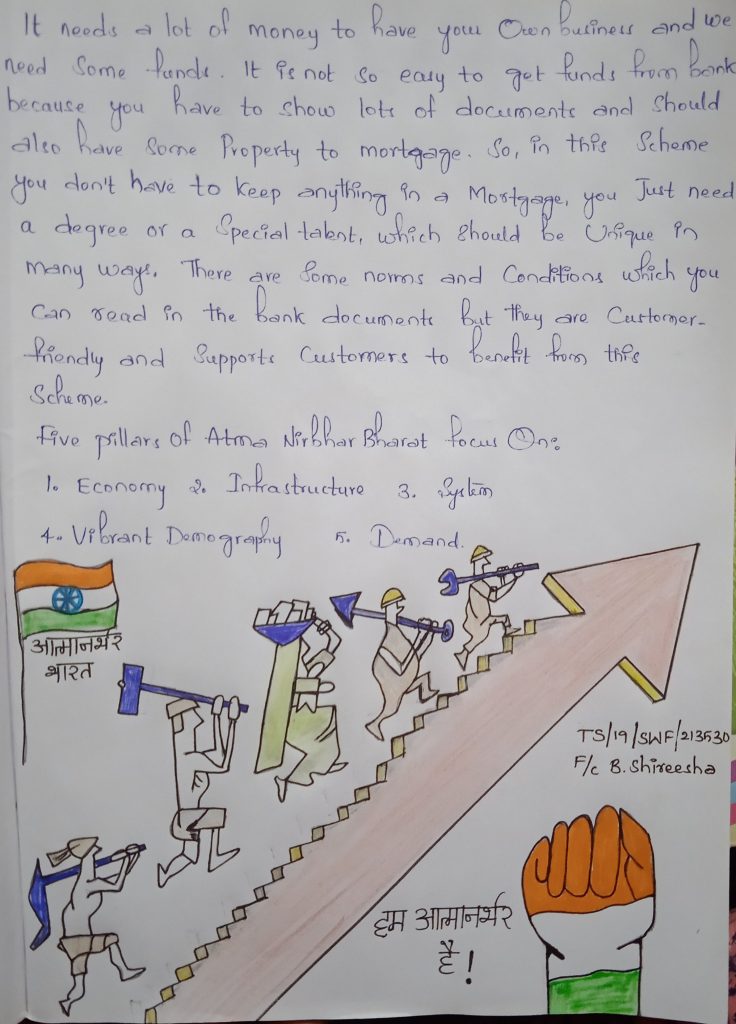 It needs a lot of money to have your Own business and we
need Some funds. It is not so easy to get funds from bank
because you have to show lots of documents and should
also have Some Property to mortgage. So, in this Scheme
you don't have to keep anything in a Mortgage, you Just need
a degree or a Special talent, which should be Unique in
many ways. There are Some norms and Conditions which you
Can read in the bank documents but they are Customer-
friendly and Supports Customers to benefit from this
Scheme.
Five pillars of Atma Nirbhar Bharat focus On:
1. Economy 2. Infrastructure 3. System
4. Vibrant Demography 5. Demand.
आत्मानर्भर
भारत
TS/19/SWF/213530
F/c B. Shireesha
हम आत्मानर्भर
है!